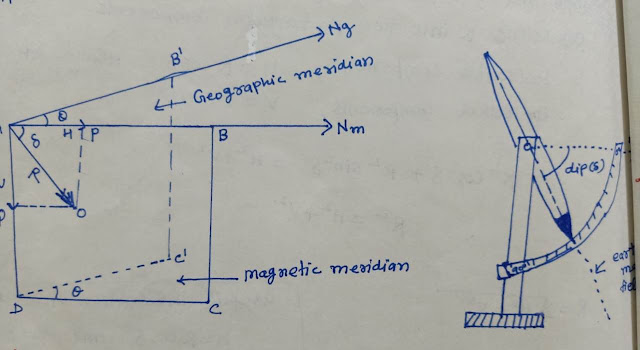 B'
Ng
Geographic meridian
θ
H
P
B
Nm
δ
R
O
C'
magnetic meridian
θ
D
C
O
dip(δ)
90°